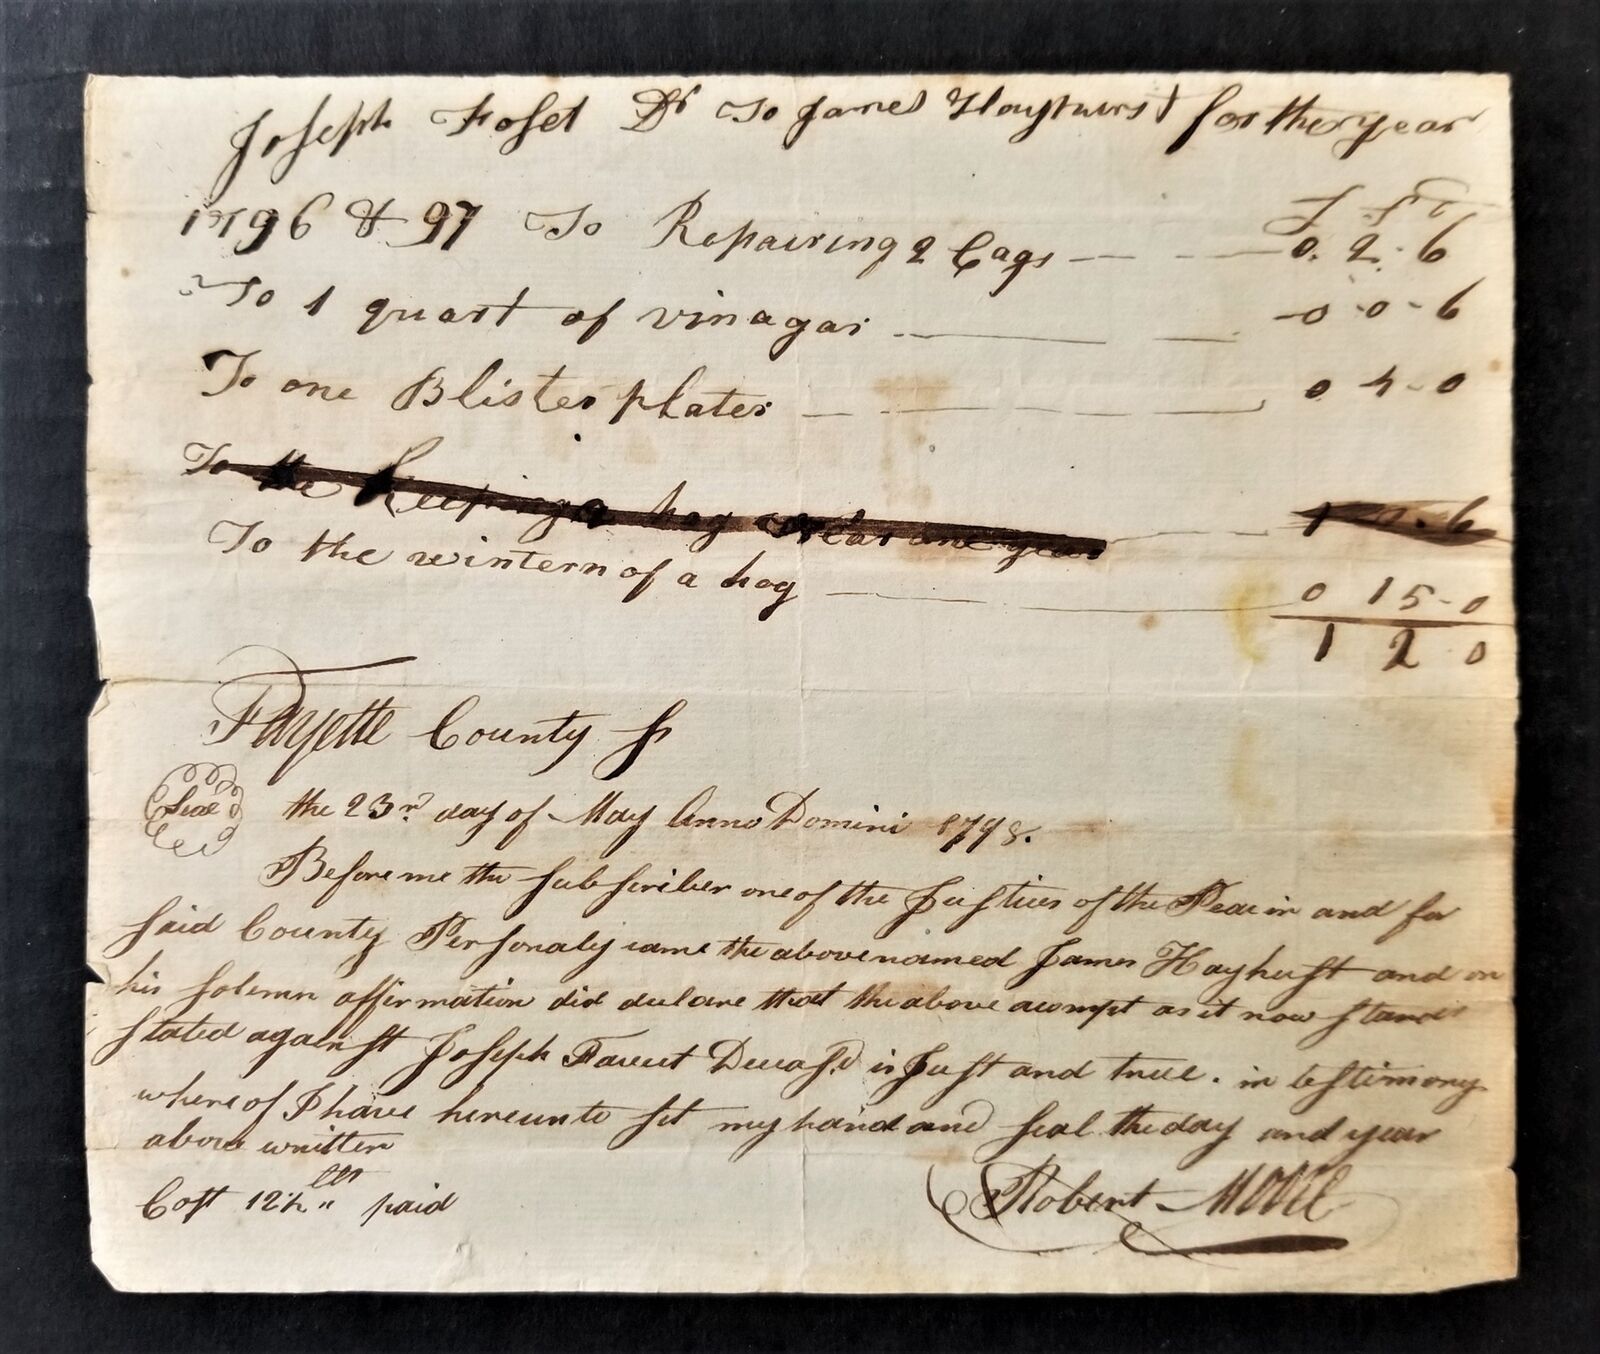 Joseph Foset Dr To James Hayhurst for the year
£ s D
1796 & 97 To Repairing 2 Cags 0. 2. 6
To 1 quart of vinagar 0 0 6
To one Blister plater 0 4 0
To the Keeping a hog one year 1 6
To the wintern of a hog 0 15 0
1 2 0
Fayette County ss
Seal the 23rd day of May Anno Domini 1798.
Before me the subscriber one of the Justices of the Peace in and for
said County Personaly came the above named James Hayhurst and on
his solemn affirmation did declare that the above acompt as it now stands
stated against Joseph Fawcet Deceasd is Just and true. in testimony
where of I have hereunto set my hand and seal the day and year
above written
Cost 12½ cts paid
Robert Moore